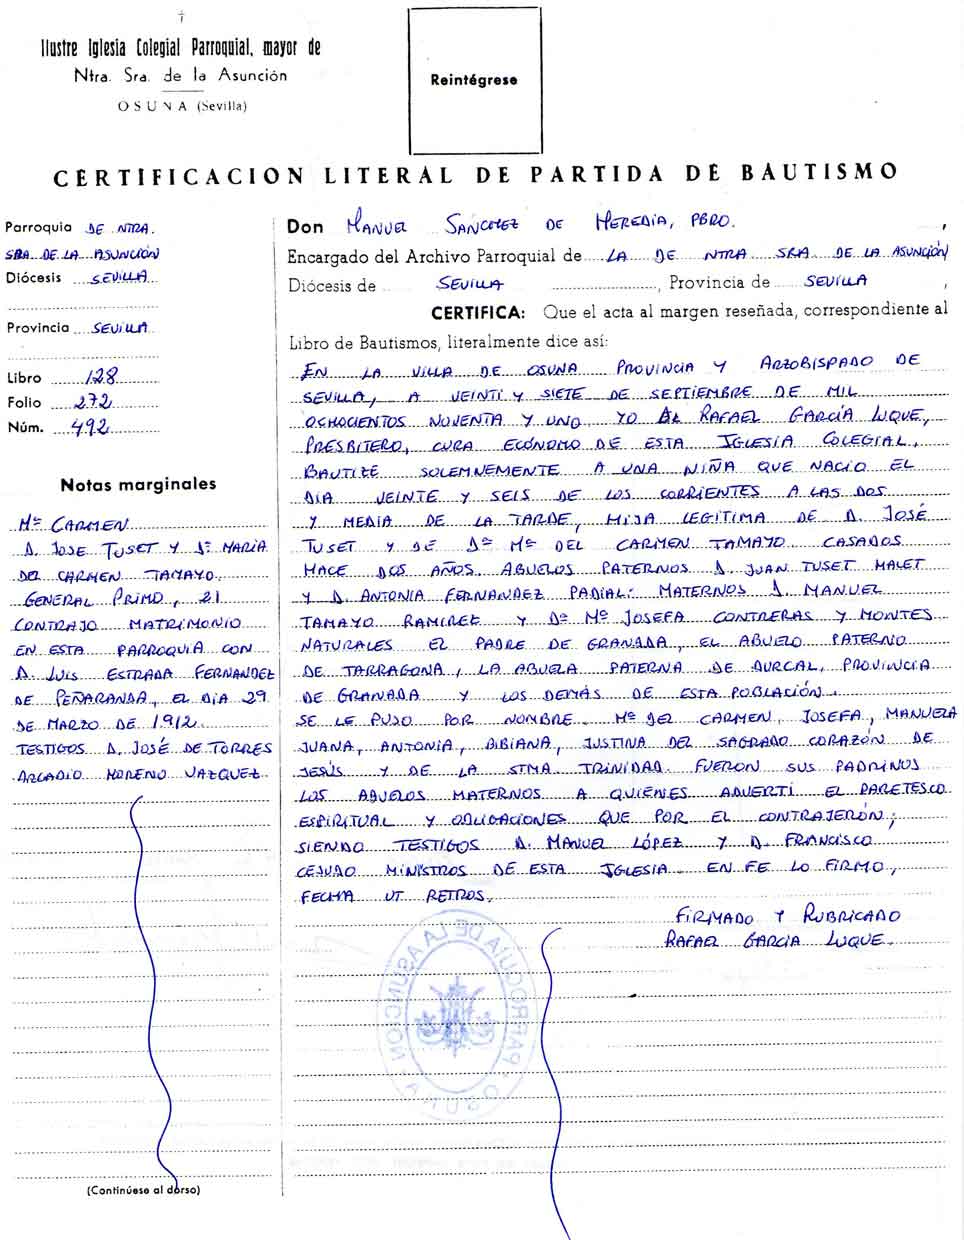 Ilustre Iglesia Colegial Parroquial, mayor de
Ntra. Sra. de la Asunción
OSUNA (Sevilla)
Reintégrese
CERTIFICACION LITERAL DE PARTIDA DE BAUTISMO
Parroquia DE NTRA.
SRA. DE LA ASUNCIÓN
Diócesis SEVILLA
Provincia SEVILLA
Libro 128
Folio 272
Núm. 492
Notas marginales
Mª CARMEN
D. JOSE TUSET Y Dª MARIA
DEL CARMEN TAMAYO.
GENERAL PRIMO, 21
CONTRAJO MATRIMONIO
EN ESTA PARROQUIA CON
D. LUIS ESTRADA FERNANDEZ
DE PEÑARANDA, EL DIA 29
DE MARZO DE 1912.
TESTIGOS D. JOSÉ DE TORRES
ARCADIO MORENO VAZQUEZ.
(Continúese al dorso)
Don MANUEL SANCHEZ DE HEREDIA, PBRO.,
Encargado del Archivo Parroquial de LA DE NTRA SRA. DE LA ASUNCIÓN
Diócesis de SEVILLA, Provincia de SEVILLA,
CERTIFICA: Que el acta al margen reseñada, correspondiente al
Libro de Bautismos, literalmente dice así:
EN LA VILLA DE OSUNA PROVINCIA Y ARZOBISPADO DE
SEVILLA, A VEINTI Y SIETE DE SEPTIEMBRE DE MIL
OCHOCIENTOS NOVENTA Y UNO YO RAFAEL GARCÍA LUQUE,
PRESBITERO, CURA ECÓNOMO DE ESTA IGLESIA COLEGIAL,
BAUTIZÉ SOLEMNEMENTE A UNA NIÑA QUE NACIO EL
DIA VEINTE Y SEIS DE LOS CORRIENTES A LAS DOS
Y MEDIA DE LA TARDE, HIJA LEGITIMA DE D. JOSÉ
TUSET Y DE Dª Mª DEL CARMEN TAMAYO CASADOS
HACE DOS AÑOS. ABUELOS PATERNOS D. JUAN TUSET MALET
Y D. ANTONIA FERNANDEZ PADIAL: MATERNOS D. MANUEL
TAMAYO RAMIREZ Y Dª Mª JOSEFA CONTRERAS Y MONTES
NATURALES EL PADRE DE GRANADA, EL ABUELO PATERNO
DE TARRAGONA, LA ABUELA PATERNA DE DURCAL, PROVINCIA
DE GRANADA Y LOS DEMÁS DE ESTA POBLACIÓN.
SE LE PUSO POR NOMBRE Mª DEL CARMEN, JOSEFA, MANUELA
JUANA, ANTONIA, BIBIANA, JUSTINA DEL SAGRADO CORAZÓN DE
JESÚS Y DE LA STMA TRINIDAD. FUERON SUS PADRINOS
LOS ABUELOS MATERNOS A QUIENES ADVERTI EL PARETESCO
ESPIRITUAL Y OBLIGACIONES QUE POR EL CONTRAJERÓN;
SIENDO TESTIGOS D. MANUEL LÓPEZ Y D. FRANCISCO
CEJUDO MINISTROS DE ESTA IGLESIA. EN FE LO FIRMO,
FECHA UT RETROS.
FIRMADO Y RUBRICADO
RAFAEL GARCIA LUQUE.
PARROQUIA DE LA ASUNCION - OSUNA